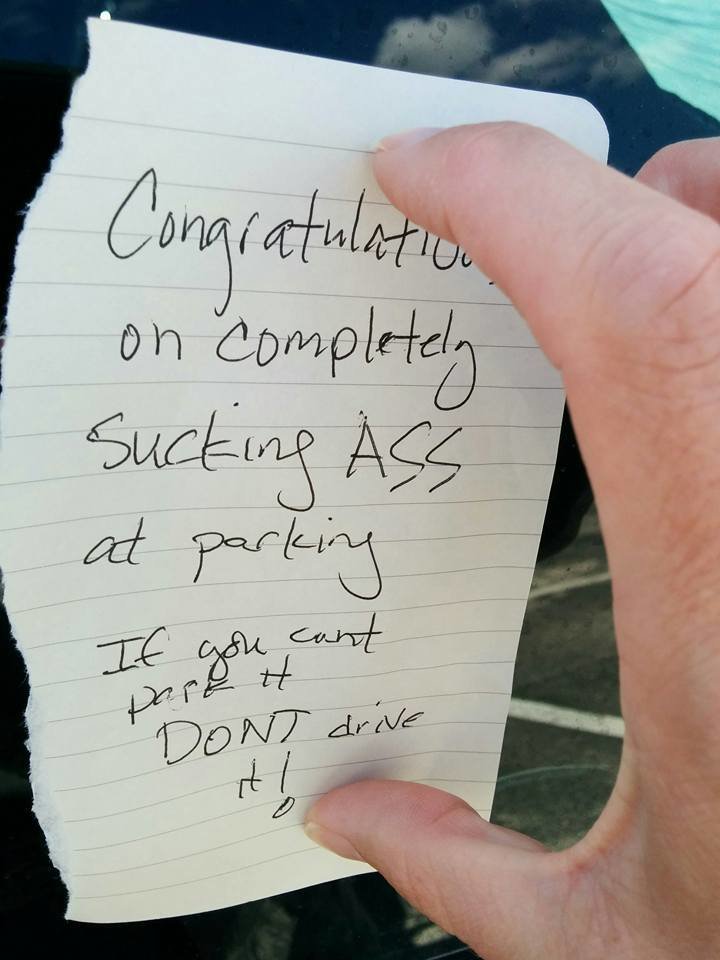 Congratulatio
on completely
Sucking ASS
at parking
If you cant
park it
DONT drive
it!